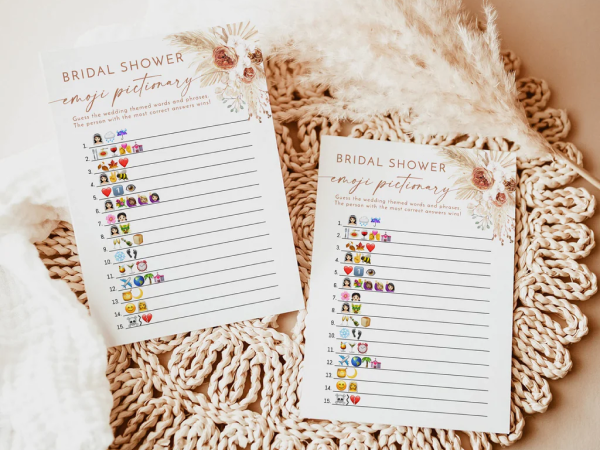 BRIDAL SHOWER
emoji pictionary
Guess the wedding themed words and phrases.
The person with the most correct answers wins!
1.
2.
3.
4.
5.
6.
7.
8.
9.
10.
11.
12.
13.
14.
15.
BRIDAL SHOWER
emoji pictionary
Guess the wedding themed words and phrases.
The person with the most correct answers wins!
1.
2.
3.
4.
5.
6.
7.
8.
9.
10.
11.
12.
13.
14.
15.